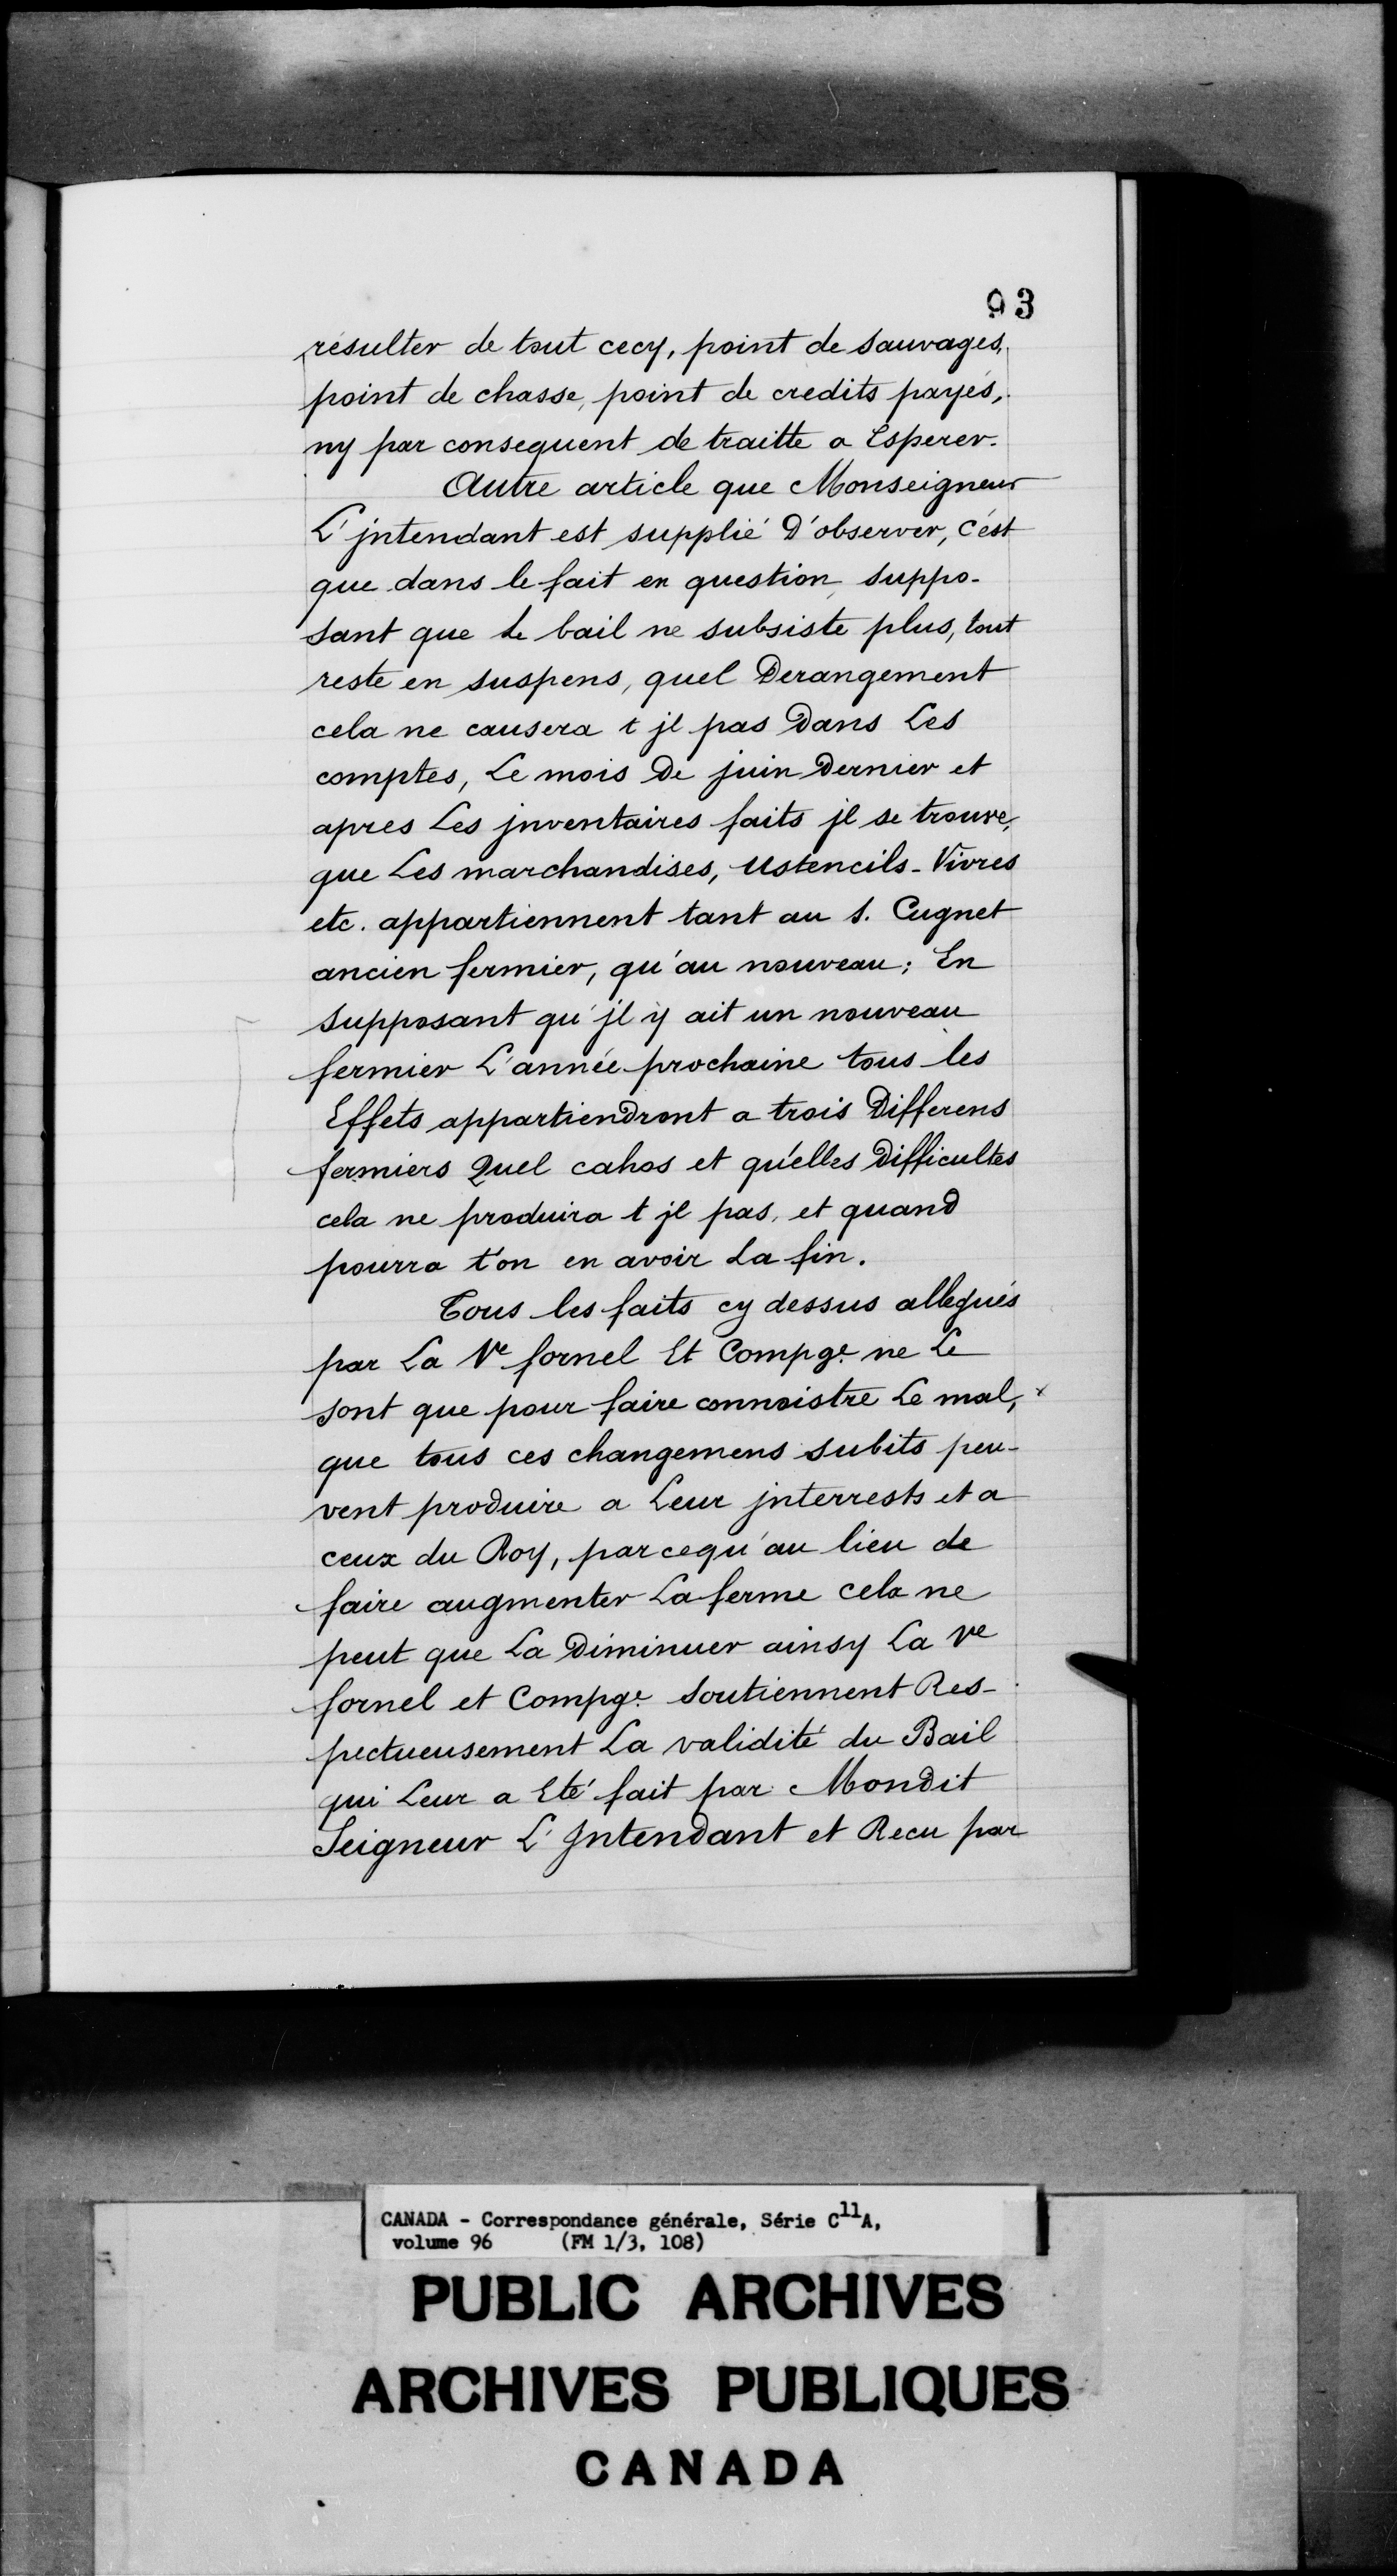 93
résulter de tout cecy, point de sauvages,
point de chasse, point de credits payés,
ny par consequent de traitte a Esperer.
Autre article que Monseigneur
L'jntendant est supplié D'observer, c'ést
que dans le fait en question, suppo-
sant que le bail ne subsiste plus, tout
reste en suspens, quel Derangement
cela ne causera t jl pas Dans Les
comptes, Le mois De juin Dernier et
apres Les jnventaires faits jl se trouve,
que Les marchandises, Ustencils - Vivres
etc. appartiennent tant au s. Cugnet
ancien fermier, qu'au nouveau; En
supposant qu'jl y ait un nouveau
fermier L'année prochaine tous les
Effets appartiendront a trois Differens
fermiers Quel cahos et qu'elles Difficultes
cela ne produira t jl pas, et quand
pourra t'on en avoir La fin.
Tous les faits cy dessus allegués
par La Ve fornel Et Compge. ne Le
sont que pour faire connoistre Le mal, x
que tous ces changemens subits peu-
vent produire a Leur jnterrests et a
ceux du Roy, parcequ'au lieu de
faire augmenter La ferme cela ne
peut que La Diminuer ainsy La Ve
fornel et Compge. soutiennent Res-
pectueusement La validité du Bail
qui Leur a Eté fait par Mondit
Seigneur L'Intendant et Recu par
CANADA - Correspondance générale, Série C11A,
volume 96 (FM 1/3, 108)
PUBLIC ARCHIVES
ARCHIVES PUBLIQUES
CANADA